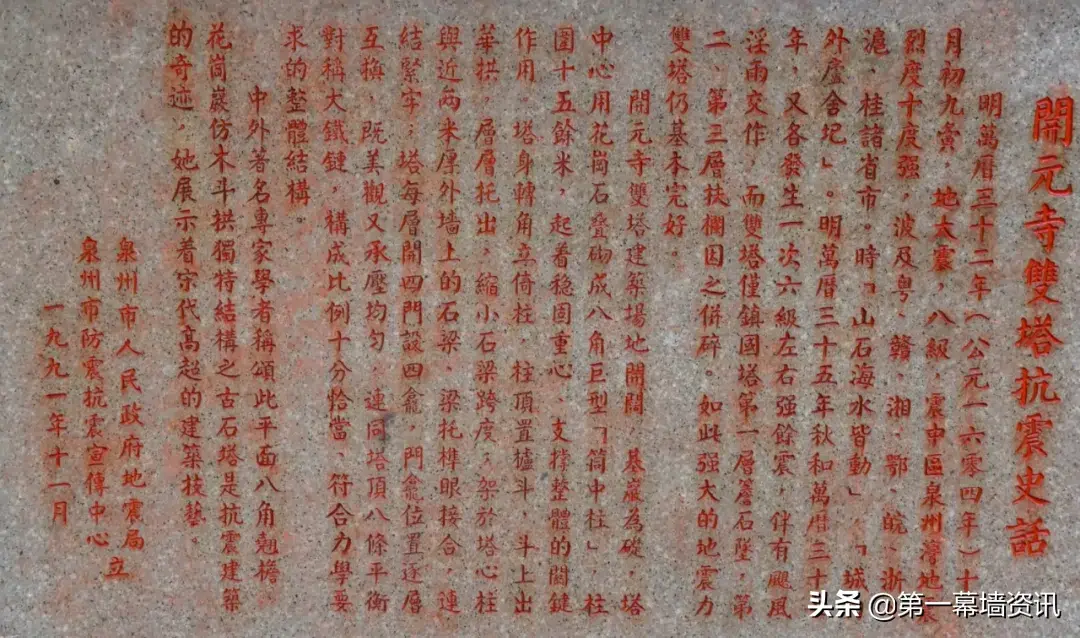 開元寺雙塔抗震史話
明萬曆三十二年（公元一六零四年）十
月初九寅，地大震，八級，震中區泉州灣地震
烈度十度强，波及粵、贛、湘、鄂、皖、浙
滬、桂諸省市。時「山石海水皆動」，「城內
外廬舍圮」。明萬曆三十五年秋和萬曆三十
年，又各發生一次六級左右强餘震，伴有颶風
淫雨交作，而雙塔僅鎮國塔第一層簷石墜，第
二、第三層扶欄因之併碎。如此强大的地震力
雙塔仍基本完好。
開元寺雙塔建築場地開闊，基巖為礎，塔
中心用花崗石叠砌成八角巨型「筒中柱」，柱
圍十五餘米，起着穩固重心、支撐整體的關鍵
作用。塔身轉角立倚柱，柱頂置櫨斗，斗上出
華拱，層層托出，縮小石梁跨度；架於塔心柱
與近兩米厚外墻上的石梁、梁托榫眼接合，連
結緊牢；塔每層開四門設四龕，門龕位置逐層
互換，既美觀又承壓均勻，連同塔頂八條平衡
對稱大鐵鏈，構成比例十分恰當、符合力學要
求的整體結構。
中外著名專家學者稱頌此平面八角翹檐、
花崗巖仿木斗拱獨特結構之古石塔是抗震建築
的奇迹，她展示着宋代高超的建築技藝。
泉州市人民政府地震局
泉州市防震抗震宣傳中心
立
一九九一年十一月
头条 @第一幕墙资讯